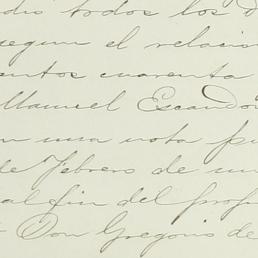 dio todos los d
segun el relacio
entos cuarenta
Manuel Escandó
n una nota pu
de Febrero de mi
al fin del prof
Don Gregorio de